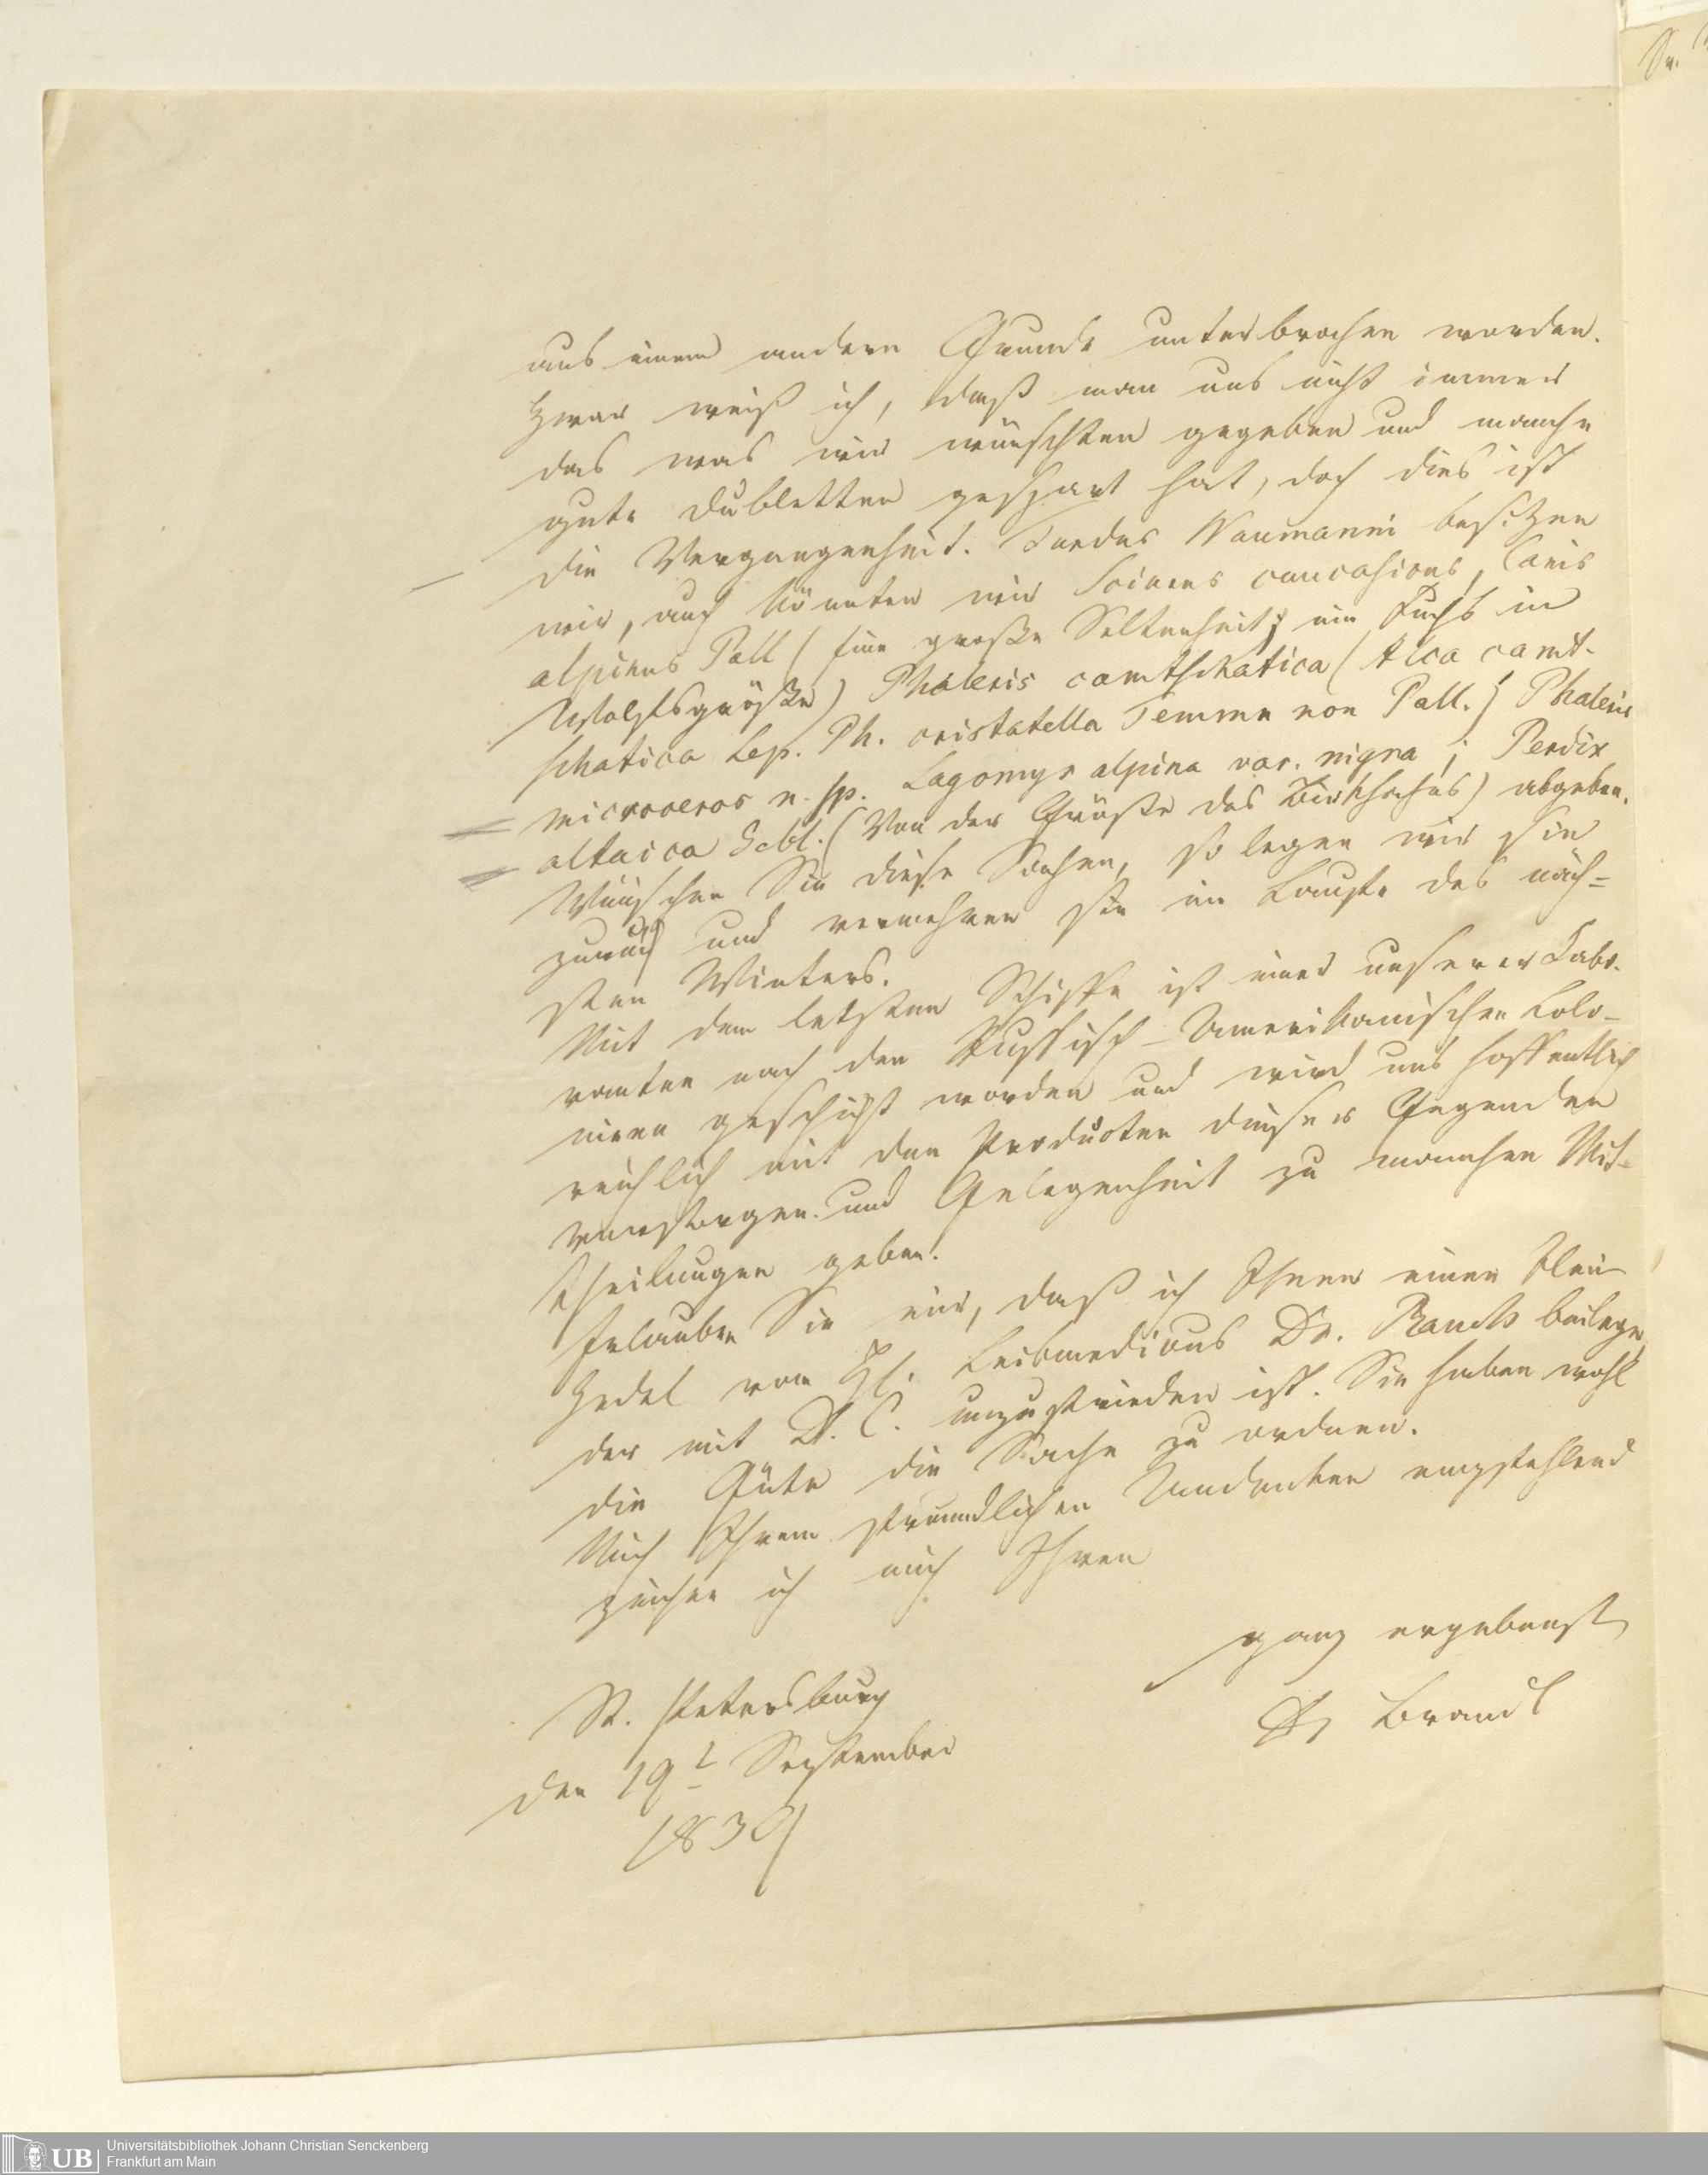 aus einem andern Grunde unterbrochen worden.
Zwar weiß ich, daß man uns nicht immer
das was wir wünschten gegeben und manche
gute Dubletten gespart hat, doch dies ist
die Vergangenheit. Turdus Naumanni besitzen
wir, auch könnten wir Sciurus caucasicus, Canis
alpinus Pall (eine große Seltenheit; ein Fuchs in
Wolfsgröße) Phaleris camtschatica (Alca camt-
schatica Lep. Ph. cristatella Temmn non Pall.) Phaleris
microceros n. sp. Lagomys alpina var. nigra; Perdix
altaica Gebl. (Von der Größe des Birkhuhns) abgeben.
Wünschen Sie diese Sachen, so legen wir sie
zurück und vermehren sie im Laufe des näch-
sten Winters.
Mit dem letzten Schiffe ist einer unserer Labo-
ranten nach den Russisch-Amerikanischen Kolo-
nieen geschickt worden und wird uns hoffentlich
reichlich mit den Producten dieser Gegenden
versorgen und Gelegenheit zu manchen Mit-
theilungen geben.
Erlauben Sie mir, daß ich Ihnen einen klein
Zedel vom Leibmedicus Dr. Rauch beilege,
der mit D. C. unzufrieden ist. Sie haben wohl
die Güte die Sache zu ordnen.
Mich Ihrem freundlichen Andenken empfehlend
zeichne ich mich Ihren
ganz ergebenst
Brandt
St. Petersburg
den 19t September
1839
Universitätsbibliothek Johann Christian Senckenberg
Frankfurt am Main
UB